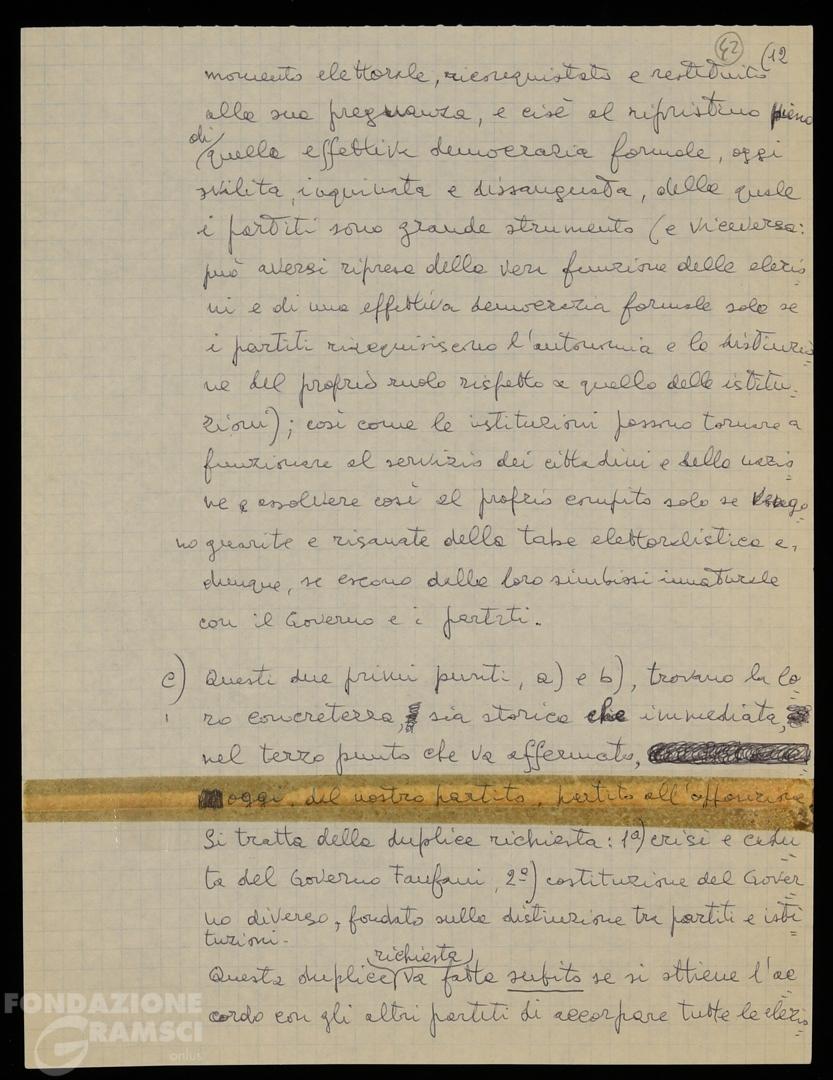 42 (12
momento elettorale, riconquistato e restituito
alla sua pregnanza, e cioè al ripristino pieno
di quella effettiva democrazia formale, oggi
svilita, inquinata e dissanguata, della quale
i partiti sono grande strumento (e viceversa:
può aversi ripresa della vera funzione delle elezio
ni e di una effettiva democrazia formale solo se
i partiti riacquisiscono l'autonomia e la distinzio
ne del proprio ruolo rispetto a quello delle istitu-
zioni); così come le istituzioni possono tornare a
funzionare al servizio dei cittadini e della nazio
ne e assolvere così al proprio compito solo se vengo
no guarite e risanate della tabe elettoralistica e,
dunque, se escono dalla loro simbiosi innaturale
con il Governo e i partiti.
c) Questi due primi punti, a) e b), trovano la lo
ro concretezza, sia storica che immediata,
nel terzo punto che va affermato,
oggi, dal nostro partito, partito all'opposizione
Si tratta della duplice richiesta: 1ª) crisi e cadu
ta del Governo Fanfani, 2ª) costituzione del Gover
no diverso, fondato sulla distinzione tra partiti e isti
tuzioni.
Questa duplice richiesta va fatta subito se si ottiene l'ac
cordo con gli altri partiti di accorpare tutte le elezio
FONDAZIONE
GRAMSCI
onlus